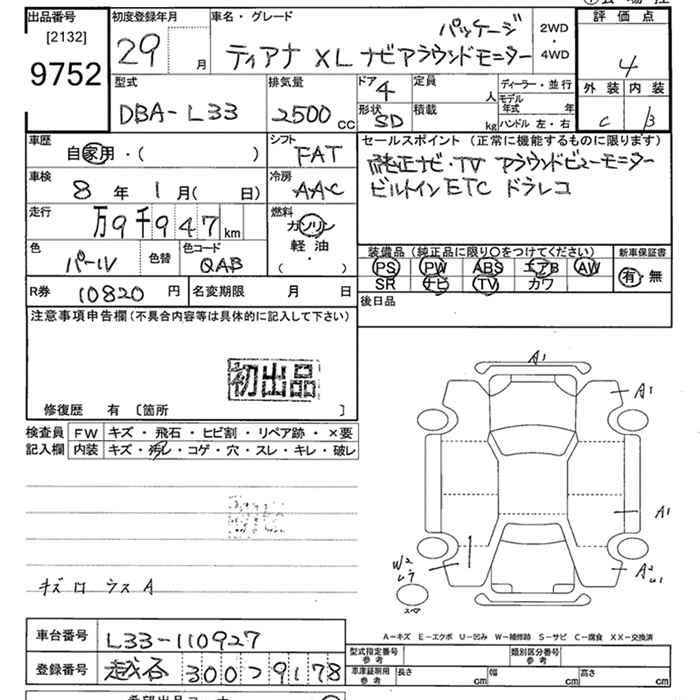 出品番号 [2132] 9752
初度登録年月 29 月
車名・グレード ティアナ XL ナビアラウンドモニター パッケージ
2WD・4WD
評価点 4
外装 内装
C B
型式 DBA-L33
排気量 2500 cc
ドア 4
形状 SD
定員 人
積載 kg
ディーラー・並行
モデル年式 年
ハンドル 左・右
車歴 自家用・( )
シフト FAT
車検 8 年 1 月( 日)
冷房 AAC
走行 万9千947 km
燃料 ガソリン 軽油 ・( )
色 パール 色替
色コード QAB
セールスポイント(正常に機能するものに限ります)
純正ナビ・TV アラウンドビューモニター
ビルトインETC ドラレコ
装備品(純正品に限り○をつけてください) 新車保証書
PS PW ABS エアB AW
SR ナビ TV カワ
有・無
R券 10820 円 名変期限 月 日
後日品
注意事項申告欄(不具合内容等は具体的に記入して下さい)
初出品
修復歴 有 〔箇所 〕
検査員記入欄
FW キズ・飛石・ヒビ割・リペア跡・×要
内装 キズ・汚レ・コゲ・穴・スレ・キレ・破レ
A1
A1
A1
W2
スペア
A-キズ E-エクボ U-凹み W-補修跡 S-サビ C-腐食 XX-交換済
車台番号 L33-110927
登録番号 越谷 300 ラ 9178
型式指定番号 参考
類別区分番号 参考
車庫証明用 参考 長さ cm 幅 cm 高さ cm